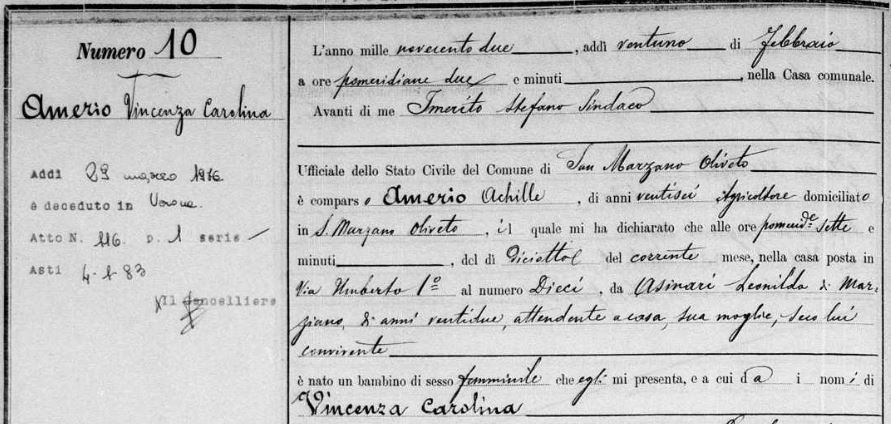 Numero 10
Amerio Vincenza Carolina
Addì 29 marzo 1976
è deceduto in Verona.
Atto N. 116. p. 1 serie
Asti 4-1-83
Il Cancelliere
L'anno mille novecento due, addì ventuno di Febbraio
a ore pomeridiane due e minuti, nella Casa comunale.
Avanti di me Imerito Stefano Sindaco
Ufficiale dello Stato Civile del Comune di San Marzano Oliveto
è comparso Amerio Achille, di anni ventisei Agricoltore domiciliato
in S. Marzano Oliveto, il quale mi ha dichiarato che alle ore pomeride sette e
minuti, del dì diciotto del corrente mese, nella casa posta in
Via Umberto 1º al numero Dieci, da Asinari Leonilda di Mar-
ziano, di anni ventidue, attendente a casa, sua moglie, seco lui
convivente
è nato un bambino di sesso femminile che egli mi presenta, e a cui dà i nomi di
Vincenza Carolina